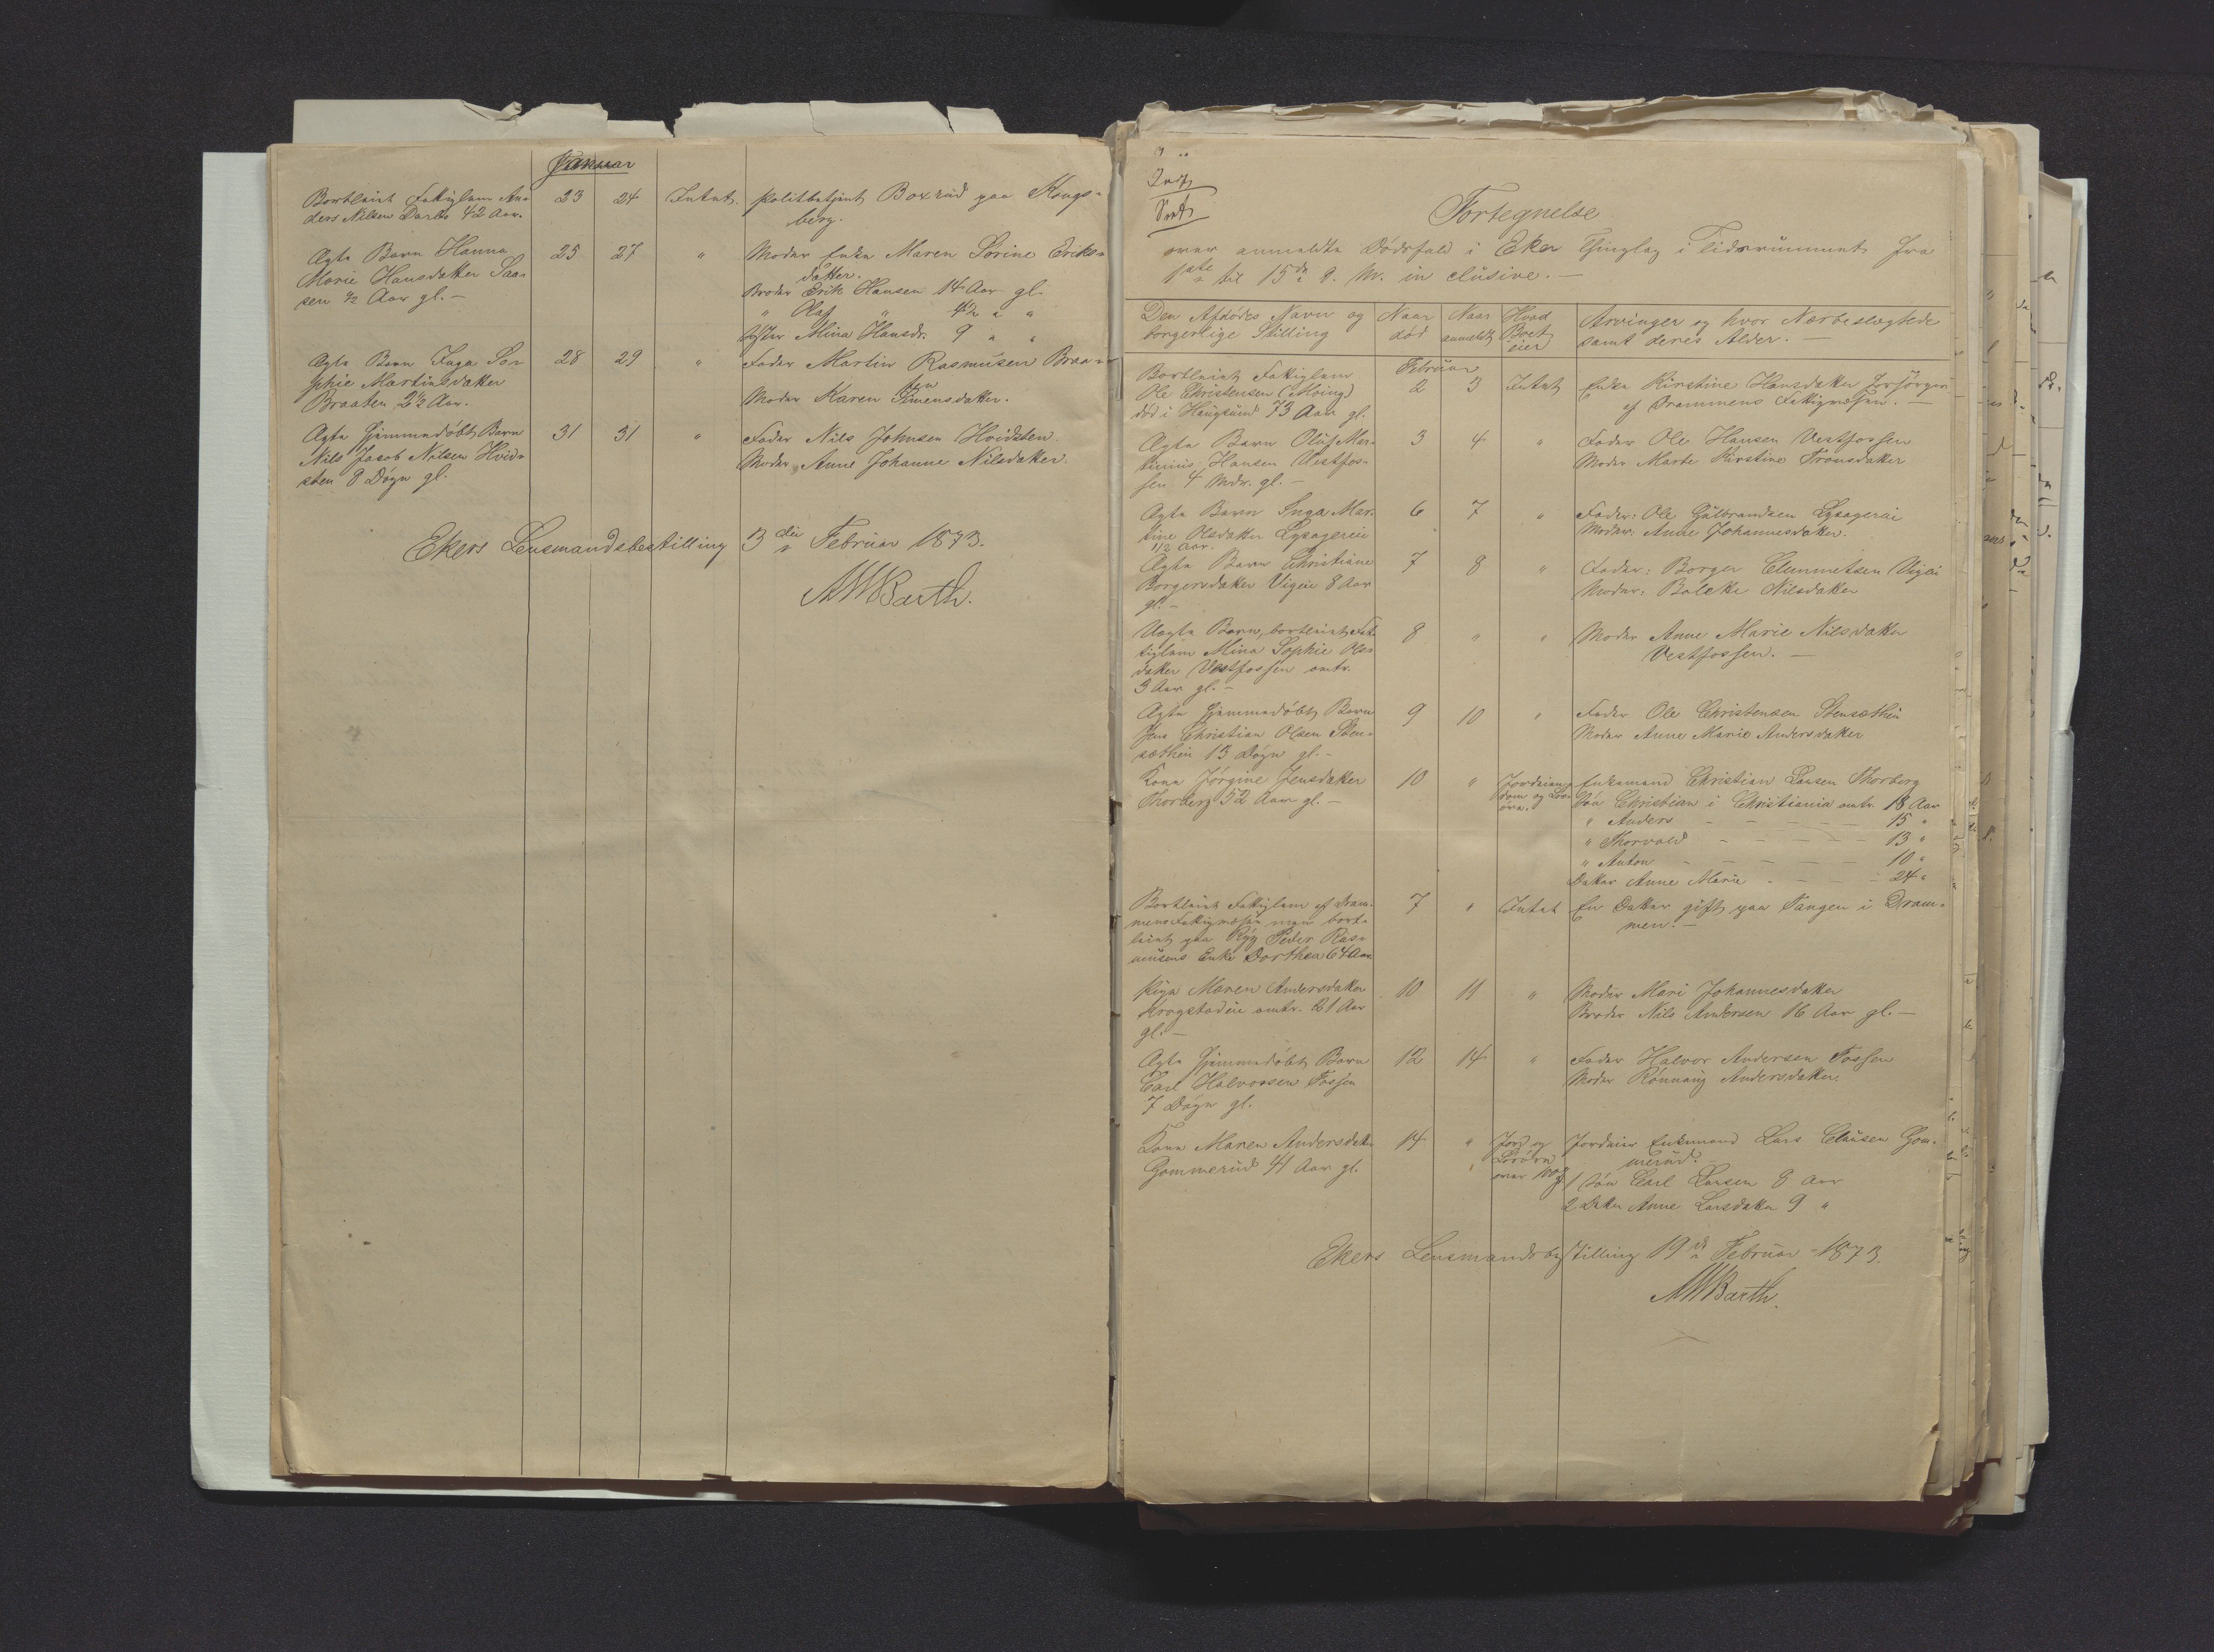 Januar
Bortleiet Fattiglem An- 23 24 Intet. Politbetjent Boxrud paa Kongs-
ders Nilsen Darbo 42 Aar. berg.
Ægte Barn Hanna 25 27 " Moder Enke Maren Sorine Eriks-
datter.
Marie Hansdatter Saa- Broder Erik Hansen 14 Aar gl.
sen ½ Aar gl. – " Olaf " 4½ " "
Søster Mina Hansdr. 9 " "
Ægte Barn Inga So- 28 29 " Fader Martin Rasmusen Braa-
phie Martinsdatter ten
Braaten 2½ Aar. Moder Karen Simensdatter.
Ægte hjemmedøbt Barn 31 31 " Fader Nils Johnsen Hvidsten
Nils Jacob Nilsen Hvid- Moder Anne Johanne Nilsdatter.
sten 8 Døgn gl.
Ekers Lensmandsbestilling 3die Februar 1873.
MWBarth.
Fortegnelse
over anmeldte Dødsfald i Eker Thinglag i Tidsrummet fra
1ste til 15de d. M. inclusive. –
Den Afdødes Navn og Naar Naar Hvad Arvinger og hvor Nærbeslægtede
borgerlige Stilling død anmeldt Boet eier samt deres Alder. –
Februar
Bortleiet Fattiglem
Ole Christensen (Moing) 2 3 Intet Enke Kirstine Hansdatter forsørges
død i Haugsund 73 Aar gl. af Drammens Fattigvæsen. –
Ægte Barn Oluf Mar- 3 4 " Fader Ole Hansen Vestfossen
tinius Hansen Vestfos- Moder Marte Kirstine Tronsdatter
sen 4 Mdr. gl. –
Ægte Barn Inga Mar- 6 7 " Fader: Ole Gulbrandsen Lysagerei
tine Olsdatter Lysagerei Moder: Anne Johannesdatter.
1/2 Aar.
Ægte Barn Christiane 7 8 " Fader: Borger Clemmetsen Vigei
Borgersdatter Vigeie 8 Aar Moder: Bolette Nilsdatter
gl. –
Uægte Barn, bortleiet Fat- 8 " " Moder Anne Marie Nilsdatter
tiglem Mina Sophie Ols- Vestfossen. –
datter Vestfossen omtr.
3 Aar gl. –
Ægte hjemmedøbt Barn 9 10 " Fader Ole Christensen Stensethei
Jens Christian Olsen Sten- Moder Anne Marie Andersdatter
sæthei 13 Døgn gl. –
Kone Jørgine Jensdatter 10 " Jordeien- Enkemand Christian Larsen Thorberg
Thorberg 52 Aar gl. – dom og Løs- Søn Christian i Christiania omtr. 18 Aar
øre. " Anders – – – – – 15 "
" Thorvald – – – – – 13 "
" Anton – – – – – 10 "
Datter Anne Marie – – – – 24 "
Bortleiet Fattiglem af Dram- 7 " Intet En Datter gift paa Tangen i Dram-
mens Fattigvæsen men bort- men. –
leiet paa Ryg Peder Ras-
musens Enke Dorthea 64 Aar
Pige Maren Andersdatter 10 11 " Moder Mari Johannesdatter
Krogstadeie omtr. 21 Aar Broder Nils Andersen 16 Aar gl. –
gl. –
Ægte hjemmedøbt Barn 12 14 " Fader Halvor Andersen Fossen
Carl Halvorsen Fossen Moder Rønnaug Andersdatter.
7 Døgn gl.
Kone Maren Andersdatter 14 " Jord og Jordeier Enkemand Lars Clausen Gom-
Gommerud 41 Aar gl. " Løsøre merud.
over 100 1 Søn Carl Larsen 8 Aar
2 Datter Anne Larsdatter 9 "
Ekers Lensmandsbestilling 19de Februar 1873.
MWBarth.